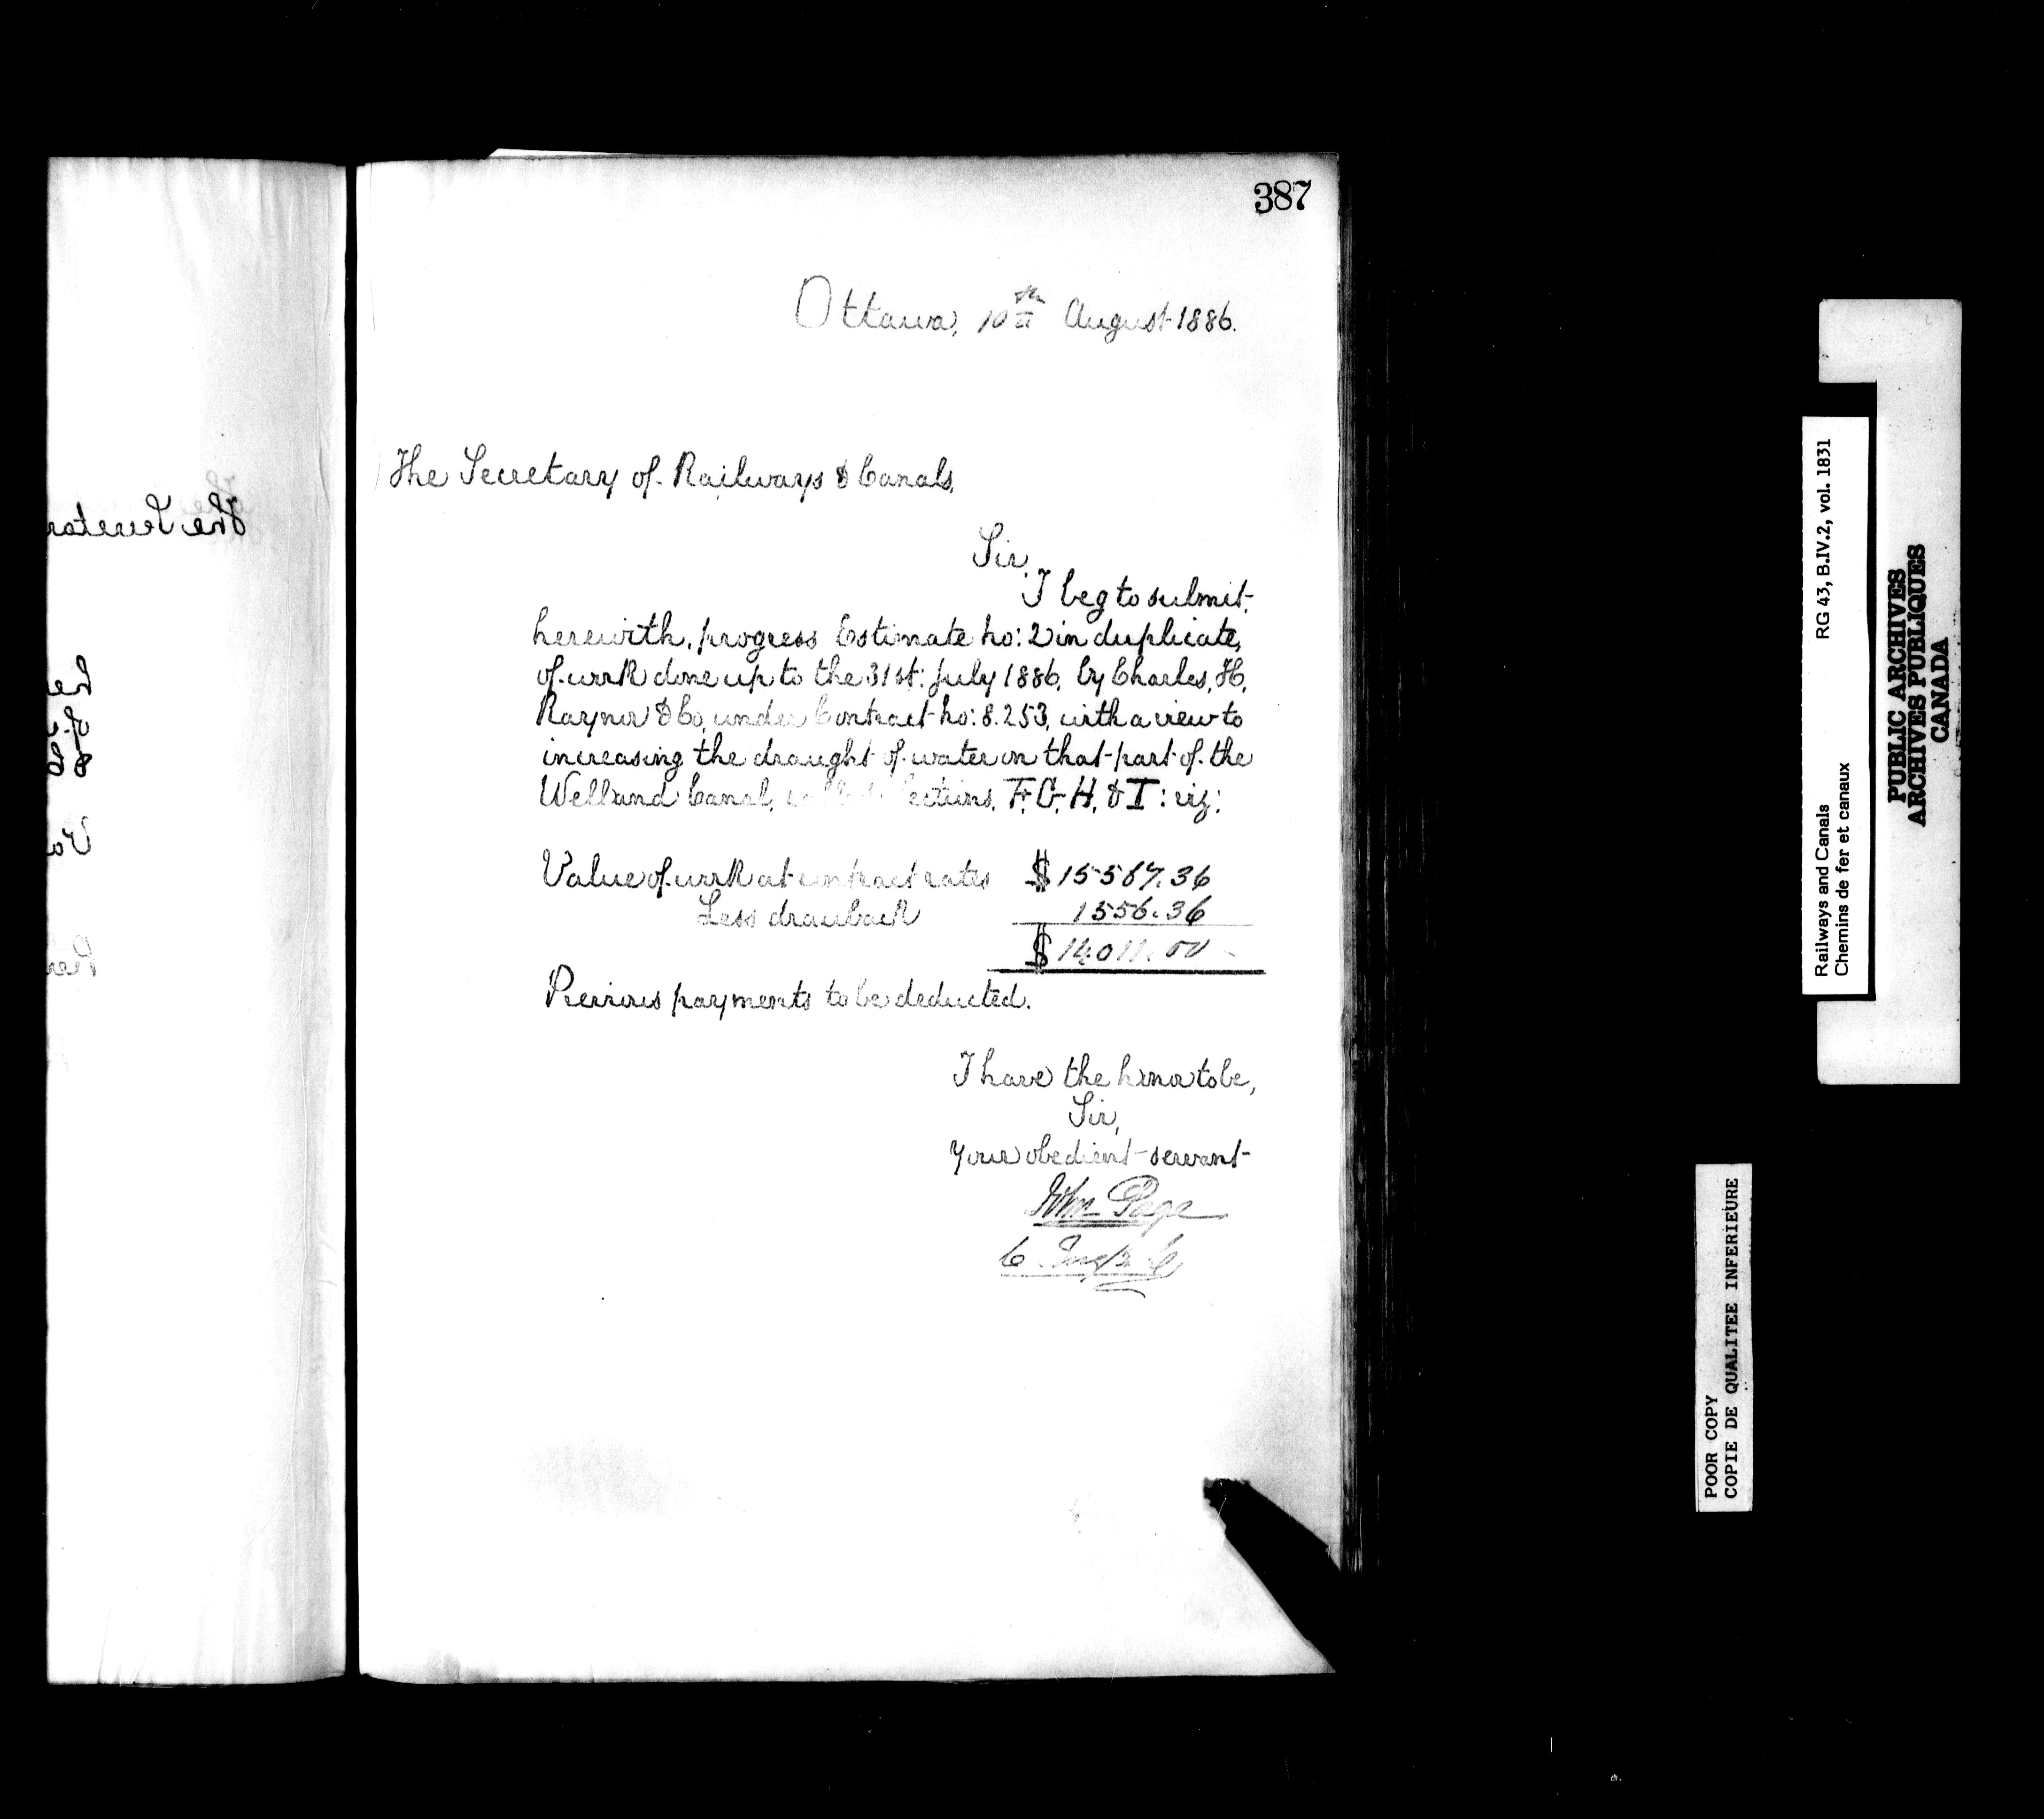 387
Ottawa, 10th August 1886.
The Secretary of Railways & Canals,
Sir,
I beg to submit
herewith, progress Estimate No: 2 in duplicate,
of work done up to the 31st: July 1886, by Charles, H,
Raynor & Co, under Contract No: 8.253, with a view to
increasing the draught of water on that part of the
Welland Canal, called Sections, F. G. H. & I: viz:
Value of work at contract rates $15567.36
Less drawback 1556.36
$14,011.00
Previous payments to be deducted.
I have the honor to be,
Sir,
Your obedient servant
John Page
The Secretar
Railways and Canals RG 43, B.IV.2, vol. 1831
Chemins de fer et canaux
PUBLIC ARCHIVES
ARCHIVES PUBLIQUES
CANADA
POOR COPY
COPIE DE QUALITEE INFERIEURE